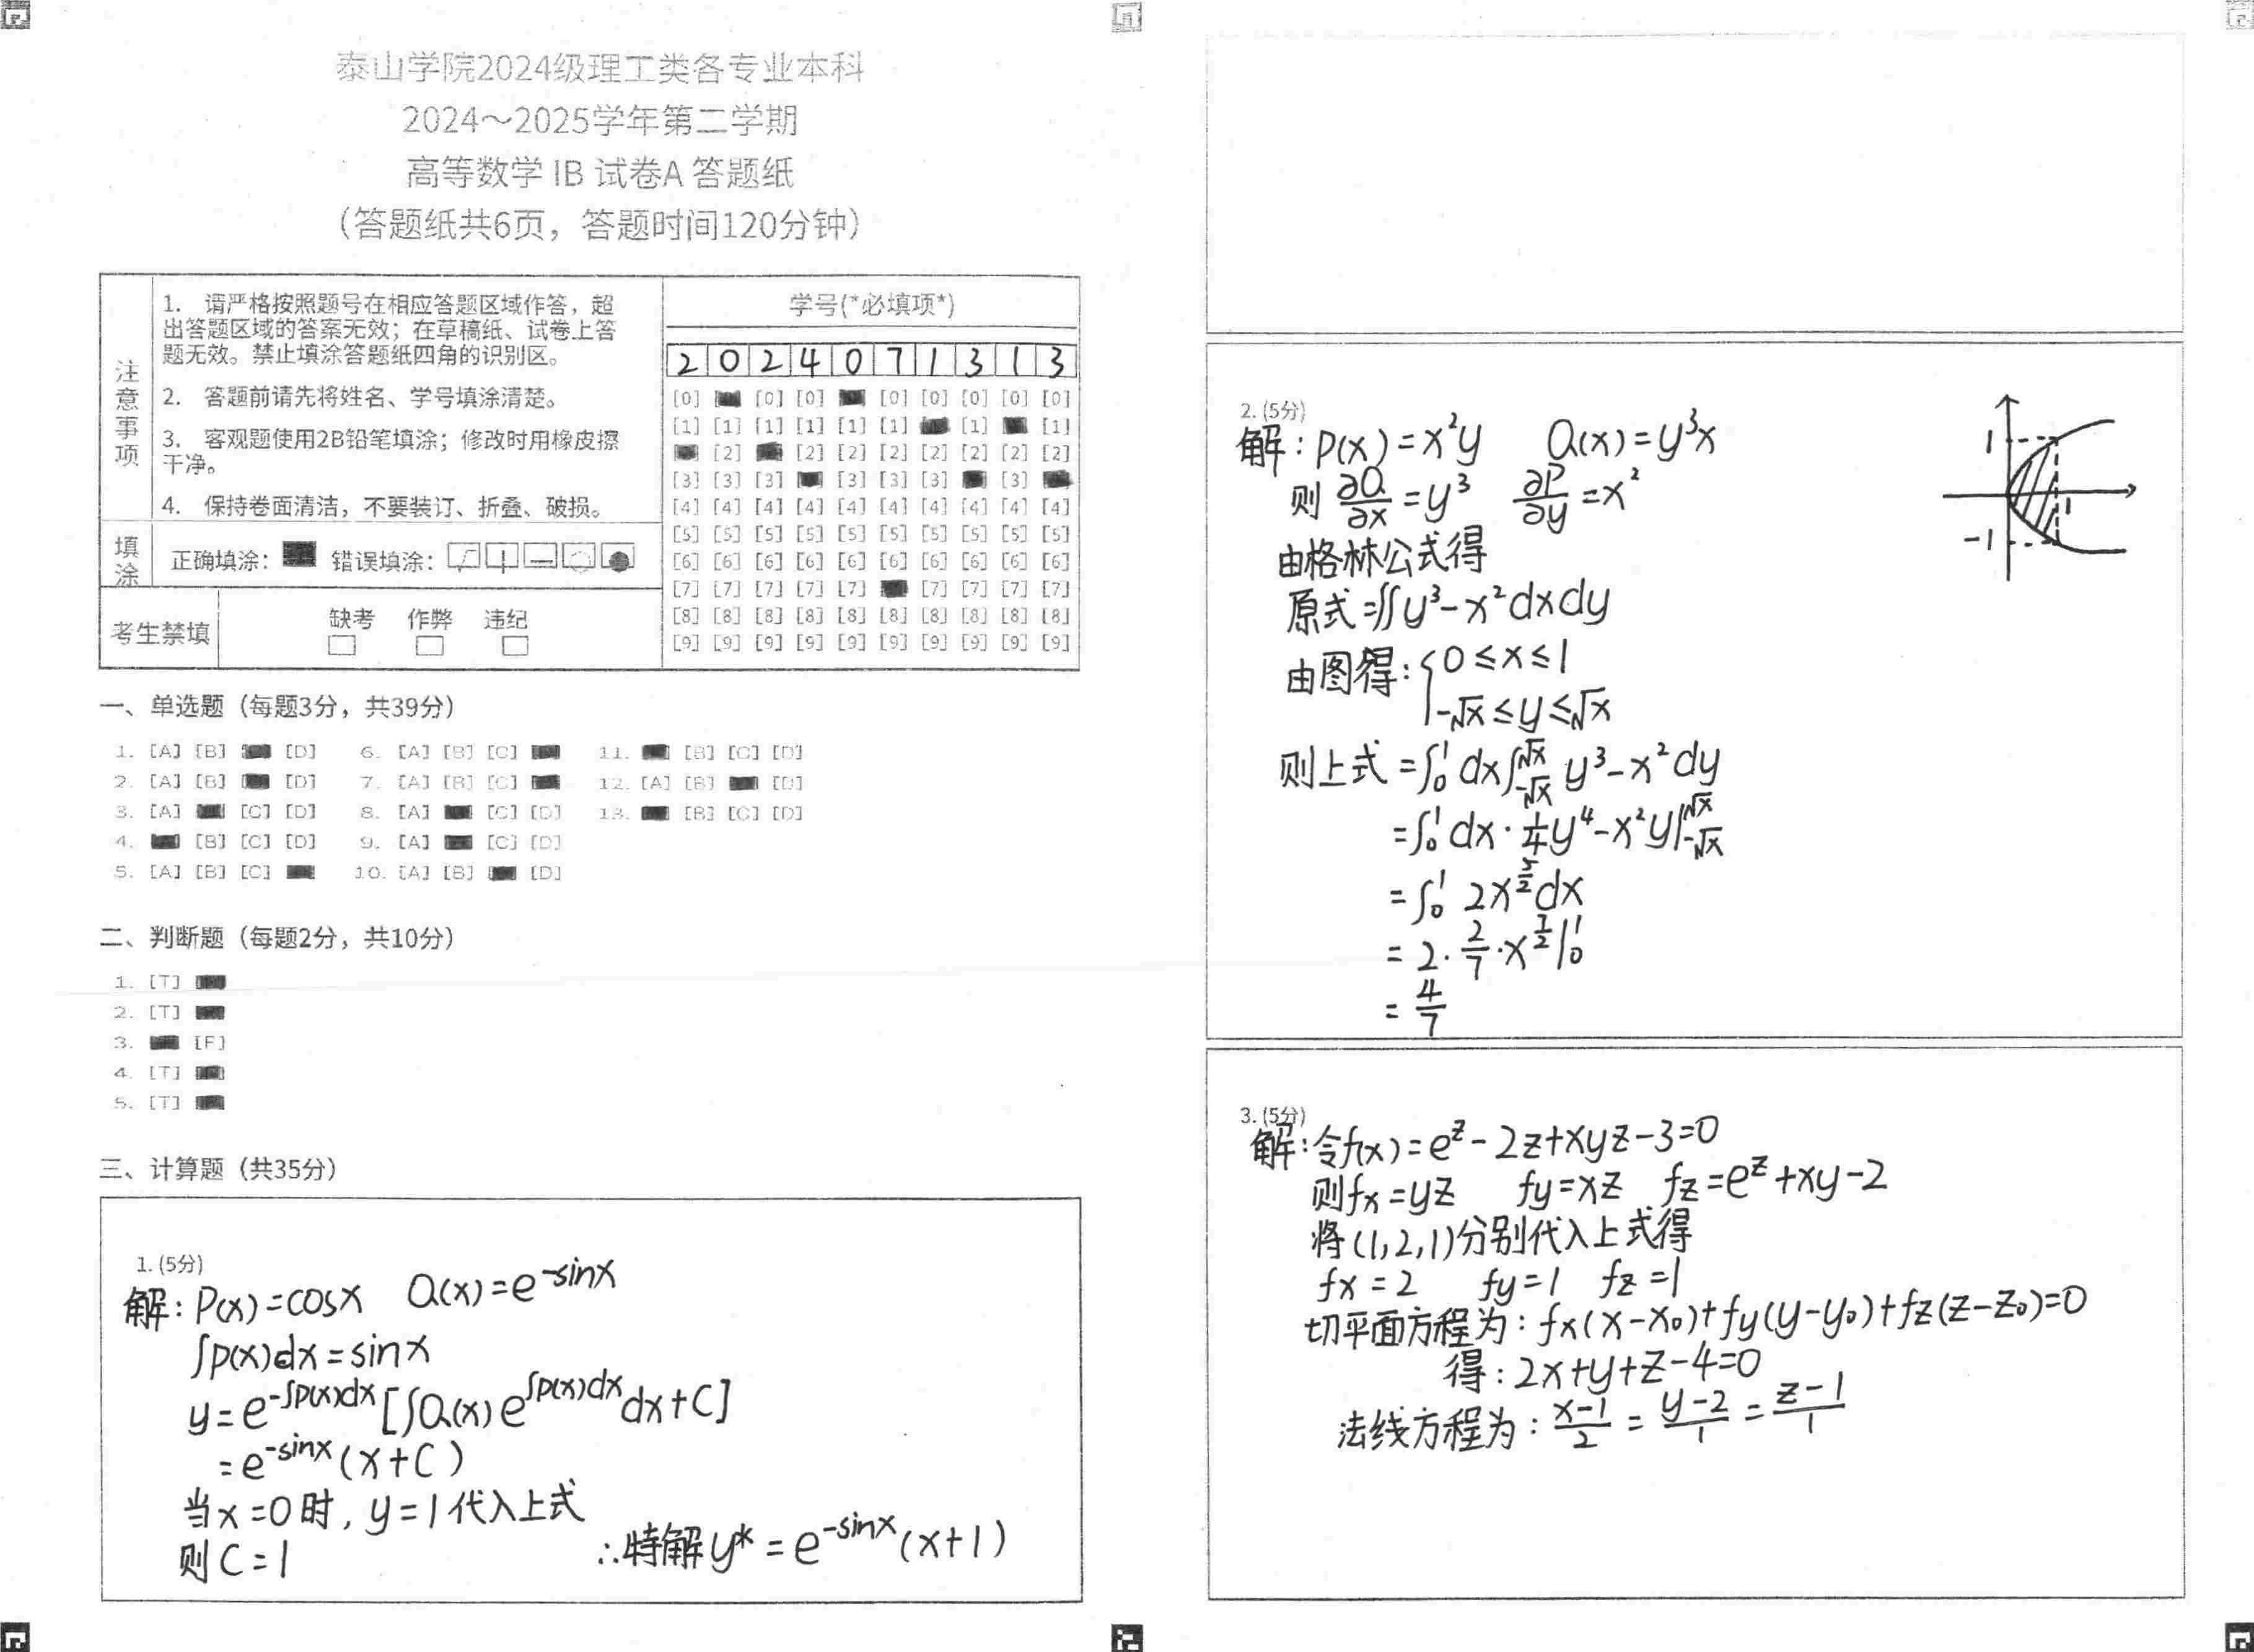 泰山学院2024级理工类各专业本科
2024～2025学年第二学期
高等数学 IB 试卷A 答题纸
（答题纸共6页，答题时间120分钟）
注意事项
1. 请严格按照题号在相应答题区域作答，超
出答题区域的答案无效；在草稿纸、试卷上答
题无效。禁止填涂答题纸四角的识别区。
2. 答题前请先将姓名、学号填涂清楚。
3. 客观题使用2B铅笔填涂；修改时用橡皮擦
干净。
4. 保持卷面清洁，不要装订、折叠、破损。
填涂
正确填涂： 错误填涂：
考生禁填
缺考 作弊 违纪
学号(*必填项*)
2 0 2 4 0 7 1 3 1 3
[0] [0] [0] [0] [0] [0] [0] [0]
[1] [1] [1] [1] [1] [1] [1] [1]
[2] [2] [2] [2] [2] [2] [2] [2]
[3] [3] [3] [3] [3] [3] [3]
[4] [4] [4] [4] [4] [4] [4] [4] [4] [4]
[5] [5] [5] [5] [5] [5] [5] [5] [5] [5]
[6] [6] [6] [6] [6] [6] [6] [6] [6] [6]
[7] [7] [7] [7] [7] [7] [7] [7] [7]
[8] [8] [8] [8] [8] [8] [8] [8] [8] [8]
[9] [9] [9] [9] [9] [9] [9] [9] [9] [9]
一、单选题（每题3分，共39分）
1. [A] [B] [D] 6. [A] [B] [C] 11. [B] [C] [D]
2. [A] [B] [D] 7. [A] [B] [C] 12. [A] [B] [D]
3. [A] [C] [D] 8. [A] [C] [D] 13. [B] [C] [D]
4. [B] [C] [D] 9. [A] [C] [D]
5. [A] [B] [C] 10. [A] [B] [D]
二、判断题（每题2分，共10分）
1. [T]
2. [T]
3. [F]
4. [T]
5. [T]
三、计算题（共35分）
1. (5分)
解：P(x)=cosx Q(x)=e^{-sinx}
∫p(x)dx=sinx
y=e^{-∫p(x)dx}[∫Q(x)e^{∫p(x)dx}dx+C]
=e^{-sinx}(x+C)
当x=0时，y=1代入上式
则C=1
∴特解y*=e^{-sinx}(x+1)
2. (5分)
解：P(x)=x²y Q(x)=y³x
则 ∂Q/∂x=y³ ∂P/∂y=x²
由格林公式得
原式=∬y³-x²dxdy
由图得：{0≤x≤1
-√x≤y≤√x
则上式=∫₀¹dx∫_{-√x}^{√x} y³-x²dy
=∫₀¹dx·¼y⁴-x²y|_{-√x}^{√x}
=∫₀¹ 2x^{5/2}dx
=2·2/7·x^{7/2}|₀¹
=4/7
1
1
-1
3. (5分)
解：令f(x)=e^z-2z+xyz-3=0
则fx=yz fy=xz fz=e^z+xy-2
将(1,2,1)分别代入上式得
fx=2 fy=1 fz=1
切平面方程为：fx(x-x₀)+fy(y-y₀)+fz(z-z₀)=0
得：2x+y+z-4=0
法线方程为：(x-1)/2=(y-2)/1=(z-1)/1